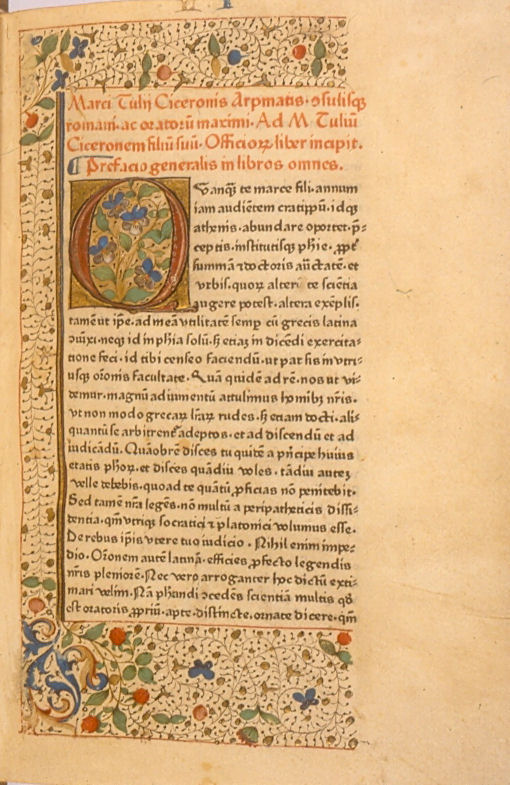 Marci Tulij Ciceronis Arpinatis. ꝯsulisqꝫ
romani. ac oratorū maximi. Ad M. Tuliū
Ciceronem filiū suū. Officioꝝ liber incipit.
Prefacio generalis in libros omnes.
Quanqꝫ te marce fili. annum
iam audiētem cratippū. idqꝫ
athenis. abundare oportet. p̄-
ceptis. institutisqꝫ phīe. ꝓpt̄
summā ⁊ doctoris auctātē. et
vrbis. quoꝝ alterū te sciētia
augere potest. altera exēplis.
tamē ut ip̄e. ad meā vtilitatē semꝑ cū grecis latina
ꝯiūxi. neqꝫ id in phīa solū. sꝫ etiaꝫ in dicēdi exercita-
tione feci. id tibi censeo faciendū. ut par sis in vtri-
usqꝫ or̄onis facultate. Quā quidē ad rē. nos ut vi-
demur. magnū adiumentū attulimus hoībꝫ nr̄is.
vt non modo grecaꝝ lr̄aꝝ rudes. sꝫ etiam docti. ali-
quantū se arbitrent᷑ adeptos. et ad discendū et ad
iudicādū. Quāobrē disces tu quidē a prīcipe huius
etatis phōꝝ. et disces quādiu voles. tādiu auteꝫ
velle debebis. quoad te quātū ꝓficias nō penitebit.
Sed tamē nr̄a legēs. nō multū a peripatheticis dissi-
dentia. qm̄ vtriqꝫ socratici ⁊ platonici volumus esse.
De rebus ip̄is vtere tuo iudicio. Nihil enim impe-
dio. Or̄onem autē latinā. efficies ꝓfecto legendis
nr̄is pleniorē. Nec vero arroganter hoc dictū exti-
mari velim. Nā phandi ꝯcedēs scientiā multis qd̄
est oratoris ꝓpriū. apte. distincte. ornate dicere. qm̄